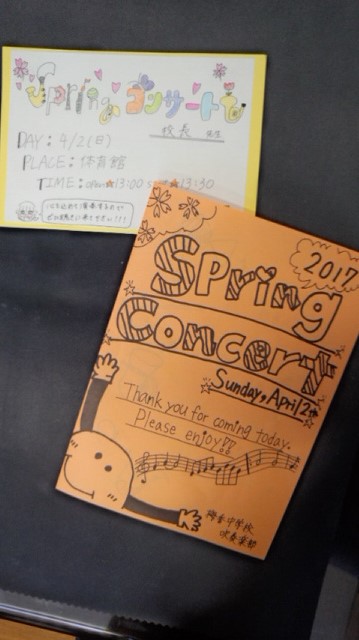 Spring コンサート
校長 先生
DAY: 4/2(日)
PLACE: 体育館
TIME: open★13:00 start★13:30
心を込めて演奏するので
ぜひ聴きに来て下さい!!!
2017
Spring
Concert
Sunday, April 2th
Thank you for coming today.
Please enjoy!!
中学校
吹奏楽部